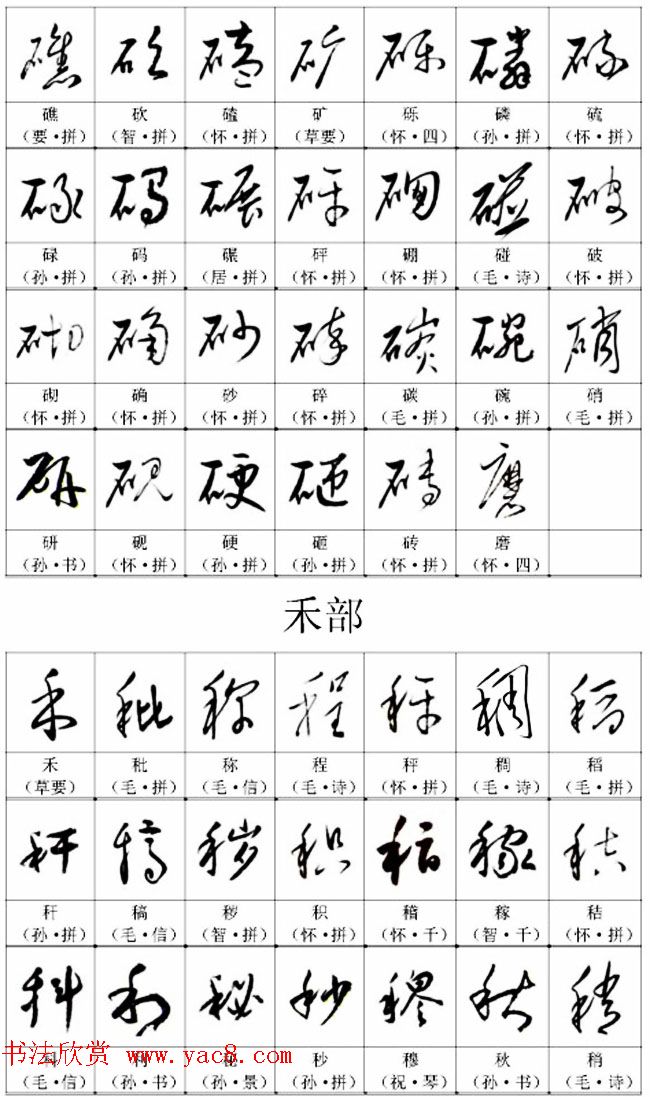 礁 砍 磕 矿 砾 磷 硫
（要·拼） （智·拼） （怀·拼） （草要） （怀·四） （孙·拼） （怀·拼）
碌 码 碾 砰 硼 碰 破
（孙·拼） （孙·拼） （居·拼） （怀·拼） （怀·拼） （毛·诗） （怀·拼）
砌 确 砂 碎 碳 碗 硝
（怀·拼） （怀·拼） （怀·拼） （怀·拼） （毛·拼） （孙·拼） （毛·拼）
研 砚 硬 砸 砖 磨
（孙·书） （怀·拼） （孙·拼） （孙·拼） （怀·拼） （怀·四）
禾部
禾 秕 称 程 秤 稠 稻
（草要） （毛·拼） （毛·信） （毛·诗） （怀·拼） （毛·诗） （毛·拼）
秆 稿 秽 积 稽 稼 秸
（孙·拼） （毛·信） （智·拼） （怀·拼） （怀·千） （智·千） （怀·拼）
科 利 秘 秒 穆 秋 稍
（毛·信） （孙·书） （孙·景） （孙·拼） （祝·琴） （孙·书） （毛·诗）
书法欣赏 www.yac8.com